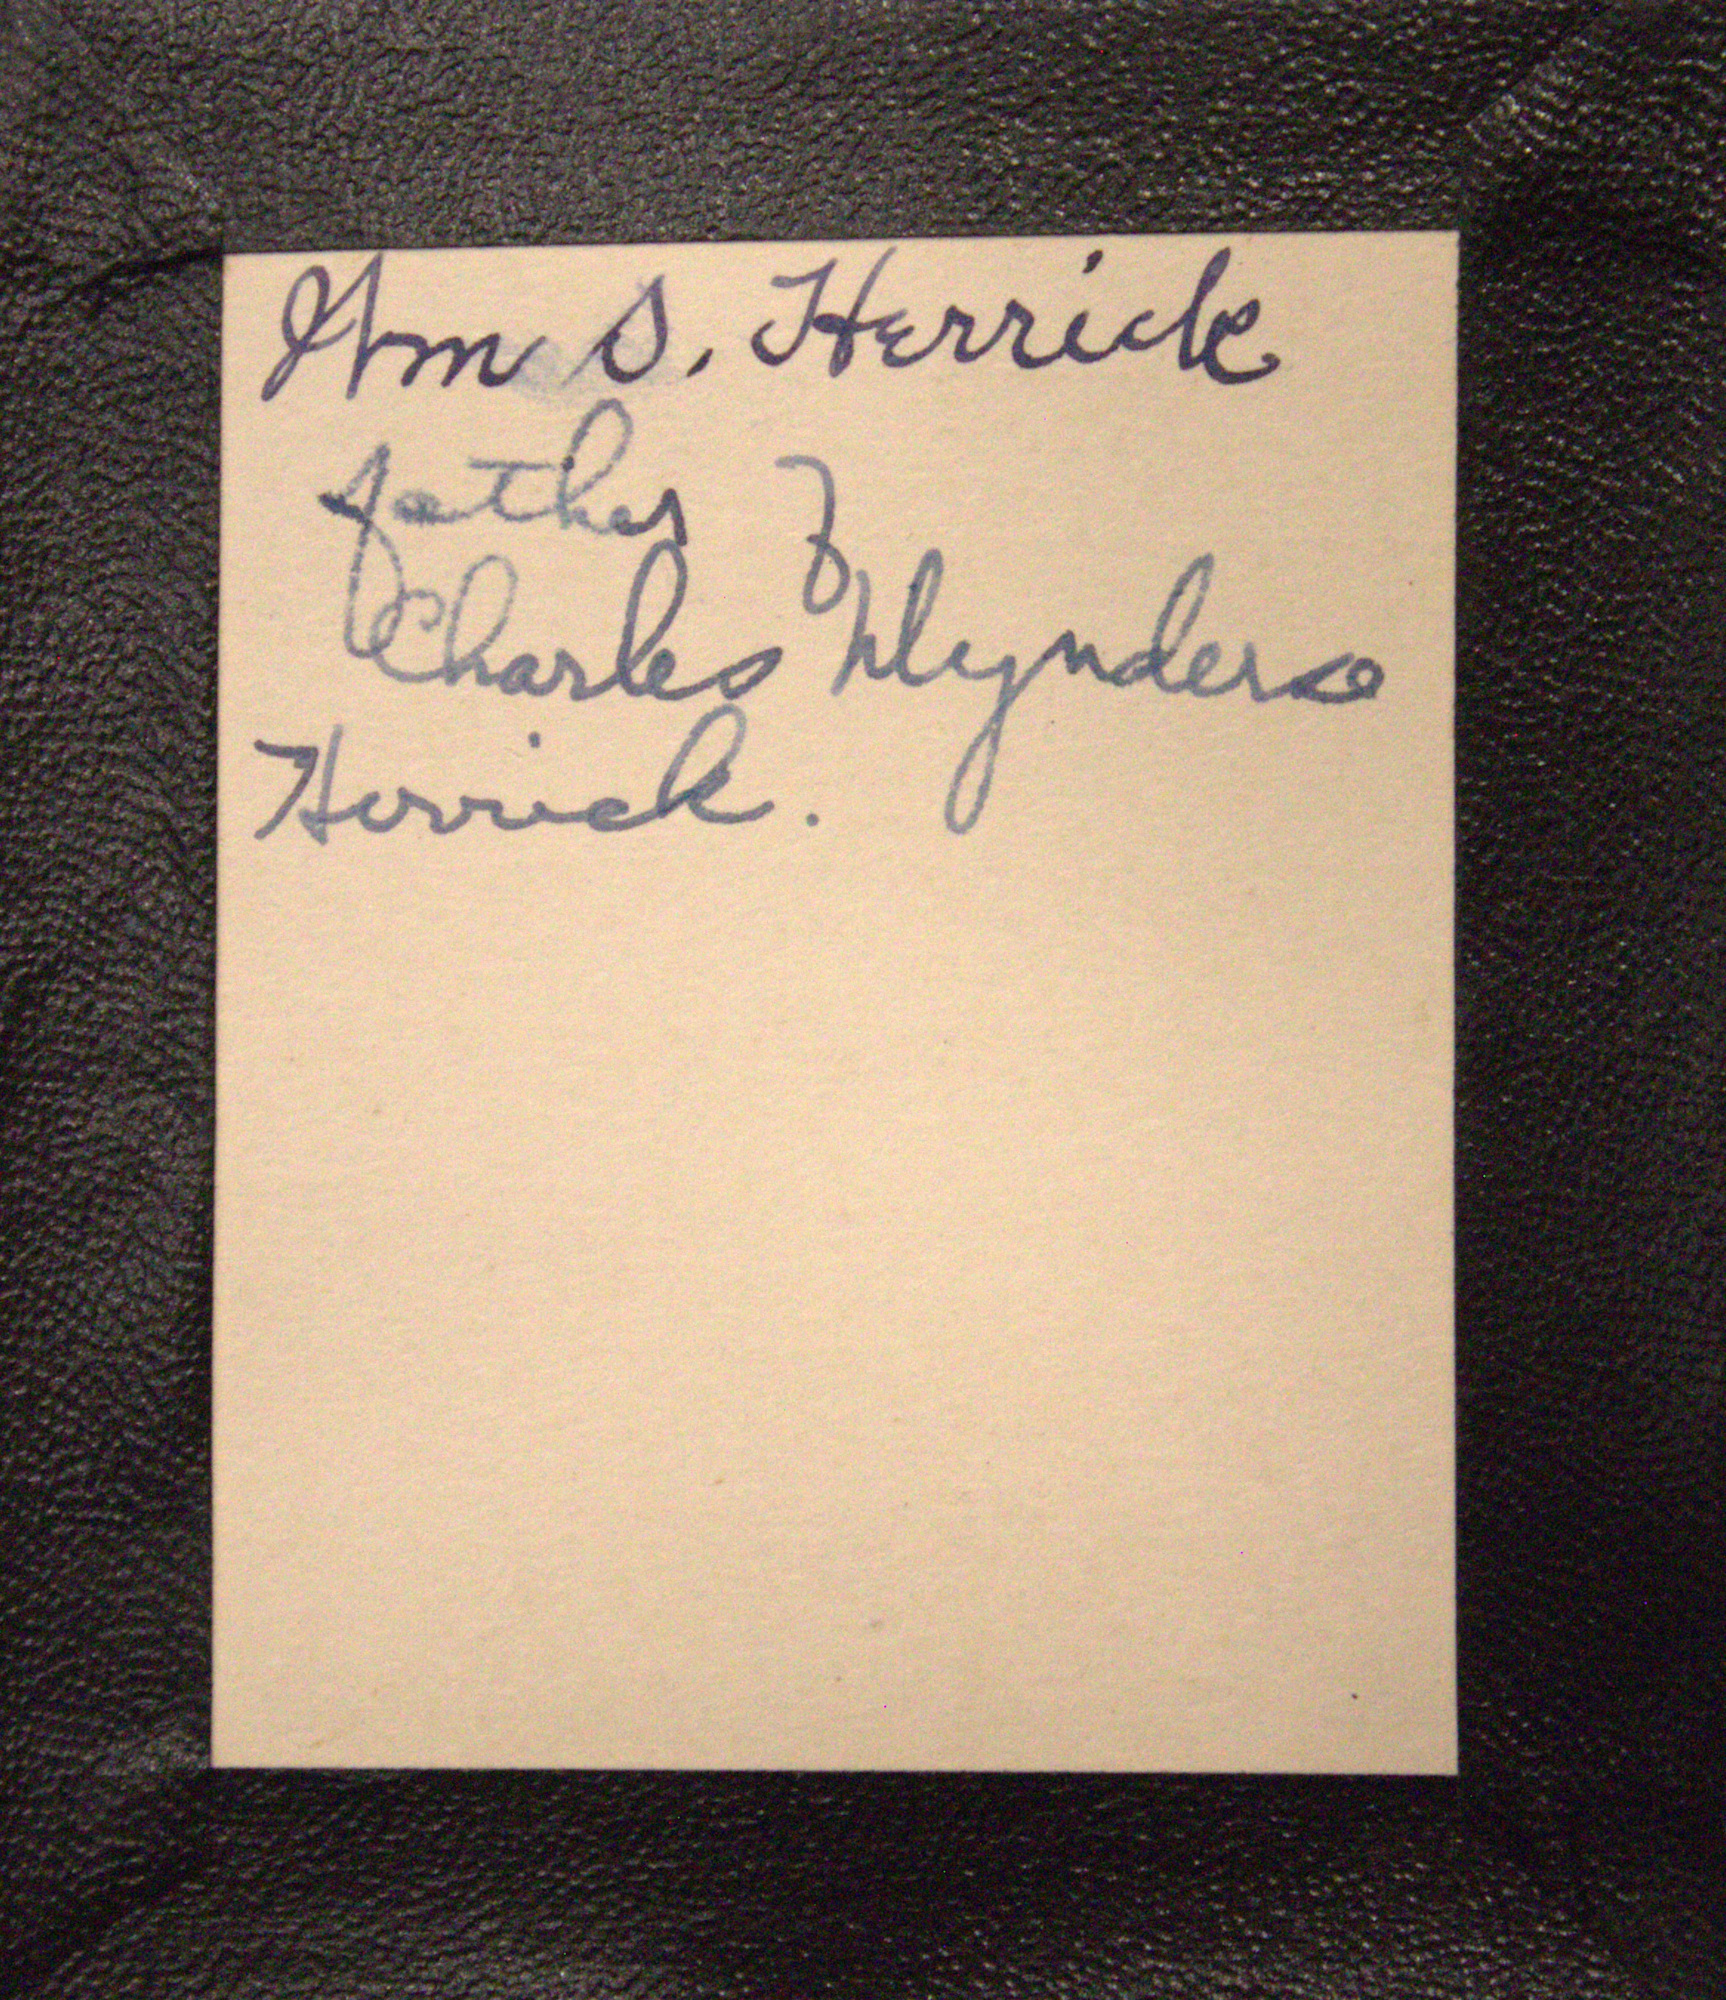 Wm S. Herrick
father of
Charles Wynderse
Herrick.